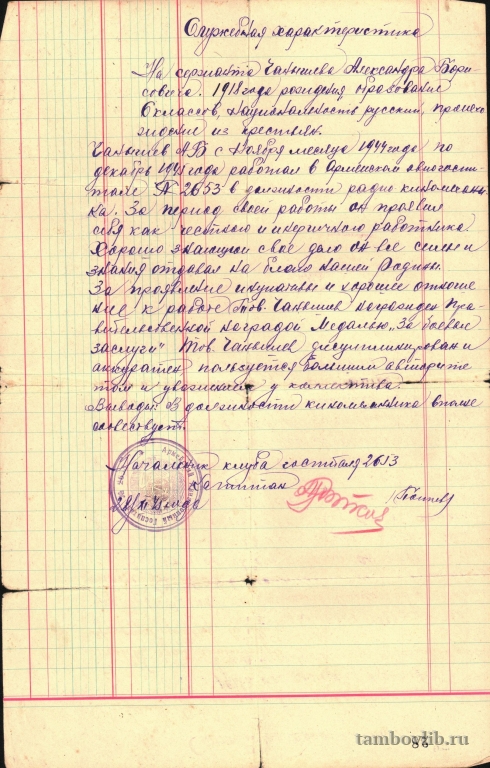 Служебная характеристика
На сержанта Чанышева Александра Бори
совича. 1918 года рождения образование
6 классов, национальность русский, происхо
ждение из крестьян.
Чанышев А.Б с ноября месяца 1944 года по
декабрь 19 года работал в Армейском
тале № 2653 в должности радио киномехани
ка. За период своей работы он проявил
себя как честного и работника
Хорошо знающий свое дело он все силы и
знания отдавал на благо нашей Родины.
За проявление и хорошее отноше
ние к работе Тов. Чанышев награжден Пра
вительственной наградой Медалью "За боевые
заслуги" Тов. Чанышев дисциплинирован и
аккуратен пользуется большим авторите
том и у коллектива.
Выводы: В должности киномеханика вполне
Начальник клуба госпиталя 2613
Капитан
86
tambovlib.ru